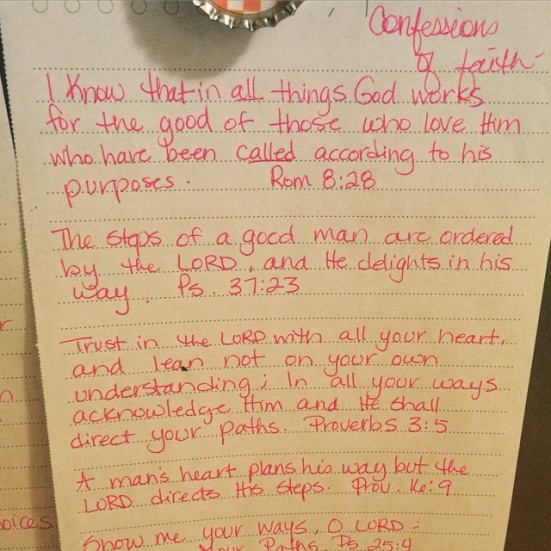 Confessions
of faith
I Know that in all things God works
for the good of those who love Him
who have been called according to his
purposes. Rom 8:28
The steps of a good man are ordered
by the LORD, and He delights in his
way. Ps. 37:23
Trust in the LORD with all your heart,
and lean not on your own
understanding; In all your ways
acknowledge Him and He shall
direct your paths. Proverbs 3:5
A man's heart plans his way but the
LORD directs His steps. Prov. 16:9
Show me your ways, O LORD;
Your Paths. Ps 25:4
oices